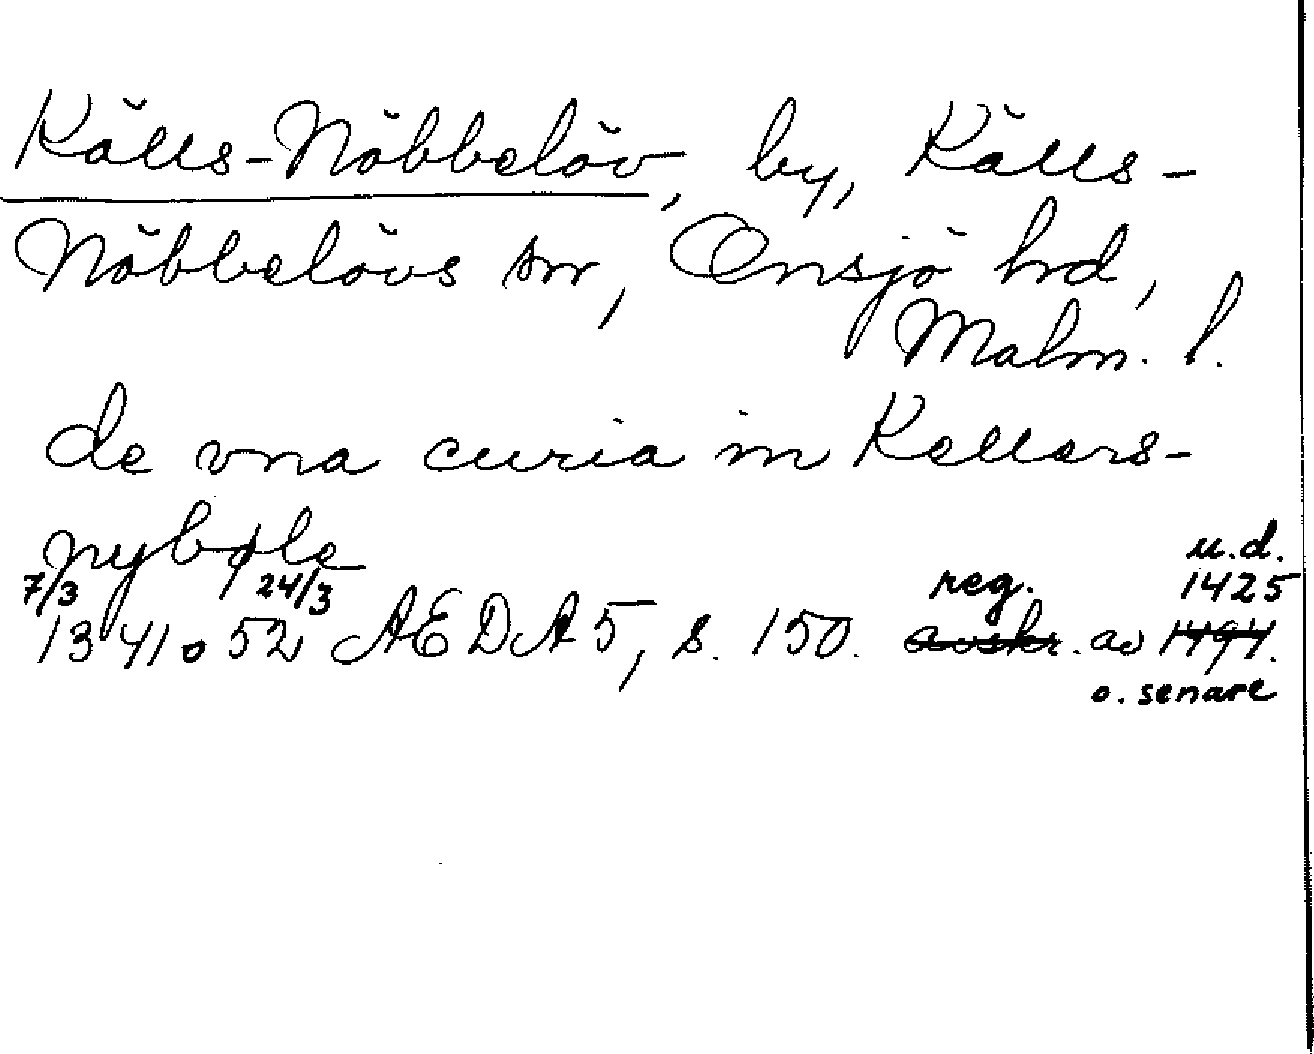 Källs-Nöbbelöv, by, Källs-
Nöbbelövs sn, Onsjö hd,
Malm. l.
de vna curia in Kellers-
nybøle
7/3 24/3 reg. u.d. 1425
1341 o 52 AEDA 5, s. 150. avskr. av 1494.
o. senare